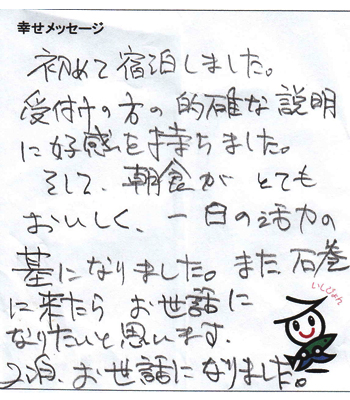 幸せメッセージ
初めて宿泊しました。
受付けの方の的確な説明
に好感を持ちました。
そして、朝食がとても
おいしく、一日の活力の
基になりました。また石巻
に来たら お世話に
なりたいと思います。
2泊、お世話になりました。
いしぴょん